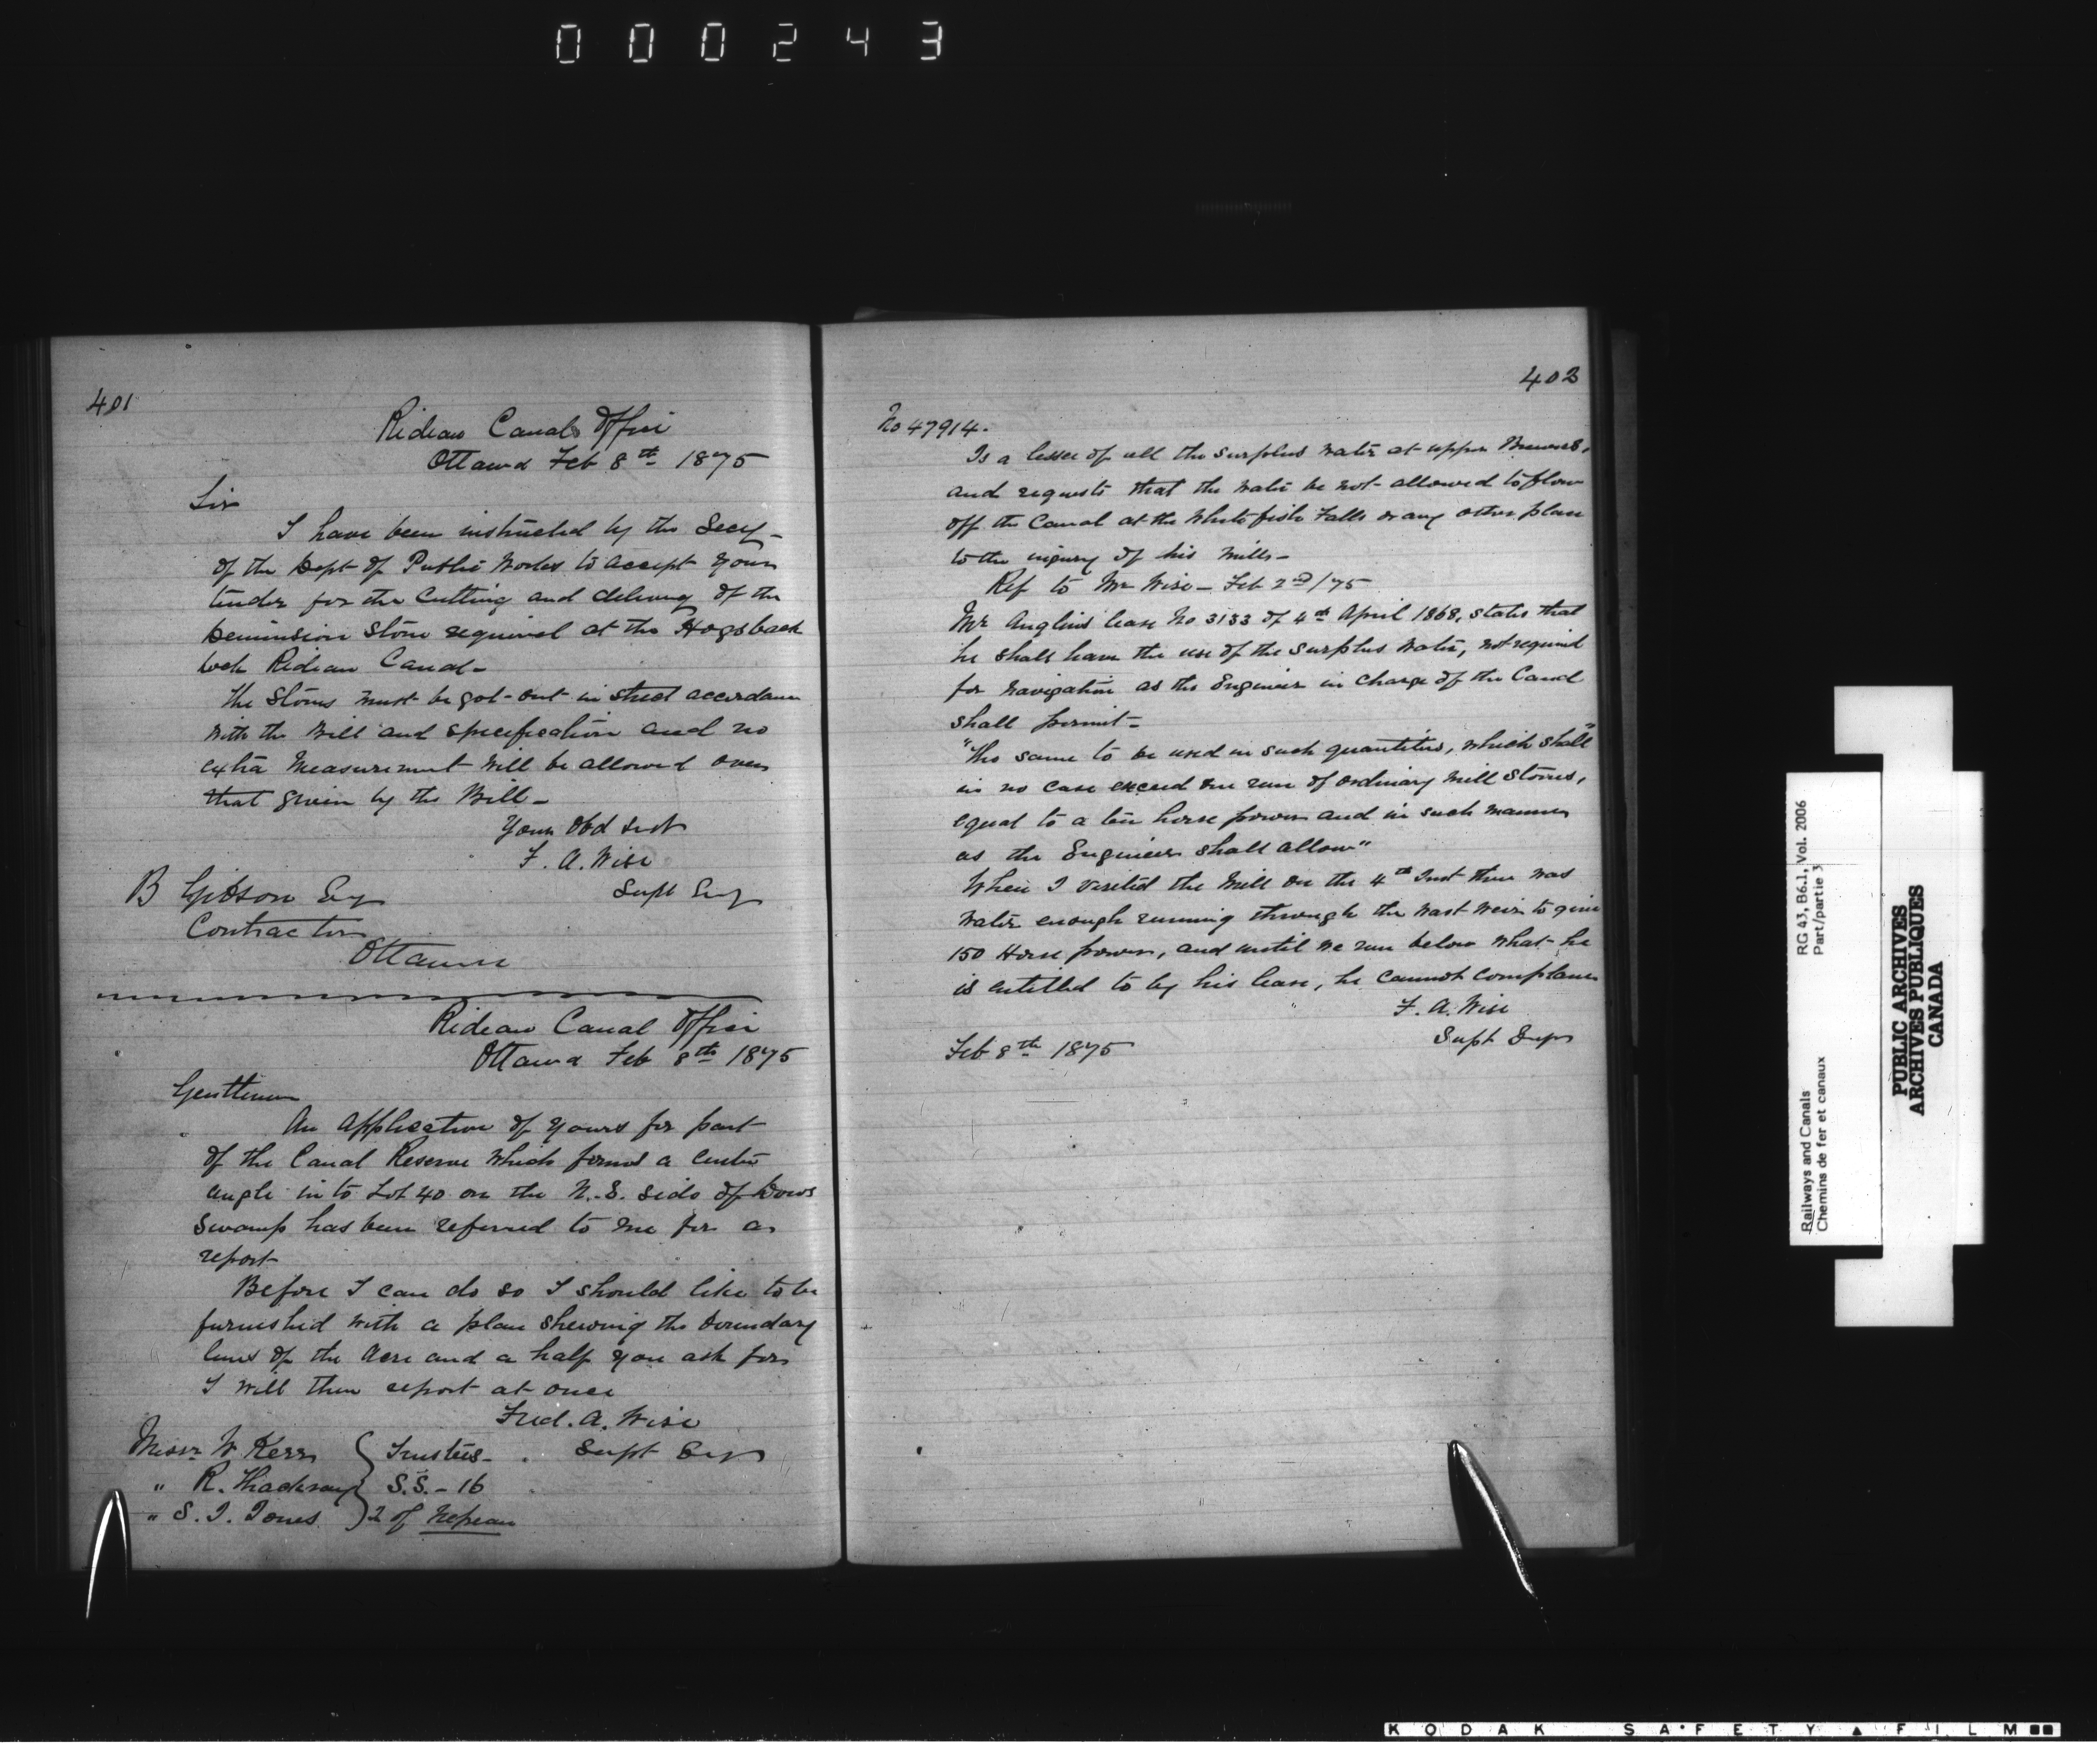 000243
401
Rideau Canal Office
Ottawa Feb 8th 1875
Sir
I have been instructed by the Secy
of the Dept of Public Works to accept your
tender for the Cutting and delivery of the
Deminsion Stone required at the Hogsback
Lock Rideau Canal
The Stones must be got out in strict accordance
with the Bill and specification and no
extra Measurement will be allowed over
that given by the Bill
Your Obd Servt
F. A. Wise
Supt Eng
B Gibson Esq
Contractor
Ottawa
Rideau Canal Office
Ottawa Feb 8th 1875
Gentlemen
An application of yours for part
of the Canal Reserve which forms a
angle in to Lot 40 on the N.E. side of Dows
Swamp has been referred to me for a
report
Before I can do so I should like to be
furnished with a plan shewing the boundary
lines of the Acre and a half you ask for
I will then report at once
Fred. A. Wise
Supt Eng
Messrs W Kerr } Trustees
" R. } S.S. - 16
" S. J. Jones } 2 of Nepean
402
No 47914.
Is a lessee of all the surplus water at upper Brewers,
and requests that the water be not allowed to flow
off the Canal at the White fish Falls or any other place
to the injury of his Mills
Ref to Mr Wise - Feb 2nd/75
Mr Anglins lease No 3133 of 4th April 1868, states that
he shall have the use of the Surplus Water, not required
for Navigation as the Engineer in charge of the Canal
shall permit
"The same to be used in such quantities, which shall"
in no case exceed one run of ordinary mill stones,
equal to a ten horse power and in such manner
as the Engineer shall allow"
When I visited the Mill on the 4th Inst there was
water enough running through the Wast Weir to give
150 Horse power, and until we run below what he
is entitled to by his lease, he cannot complain
F. A. Wise
Supt Engr
Feb 8th 1875
RG 43, B6.1, Vol. 2006
Part/partie 3
Railways and Canals
Chemins de fer et canaux
PUBLIC ARCHIVES
ARCHIVES PUBLIQUES
CANADA
KODAK SAFETY FILM